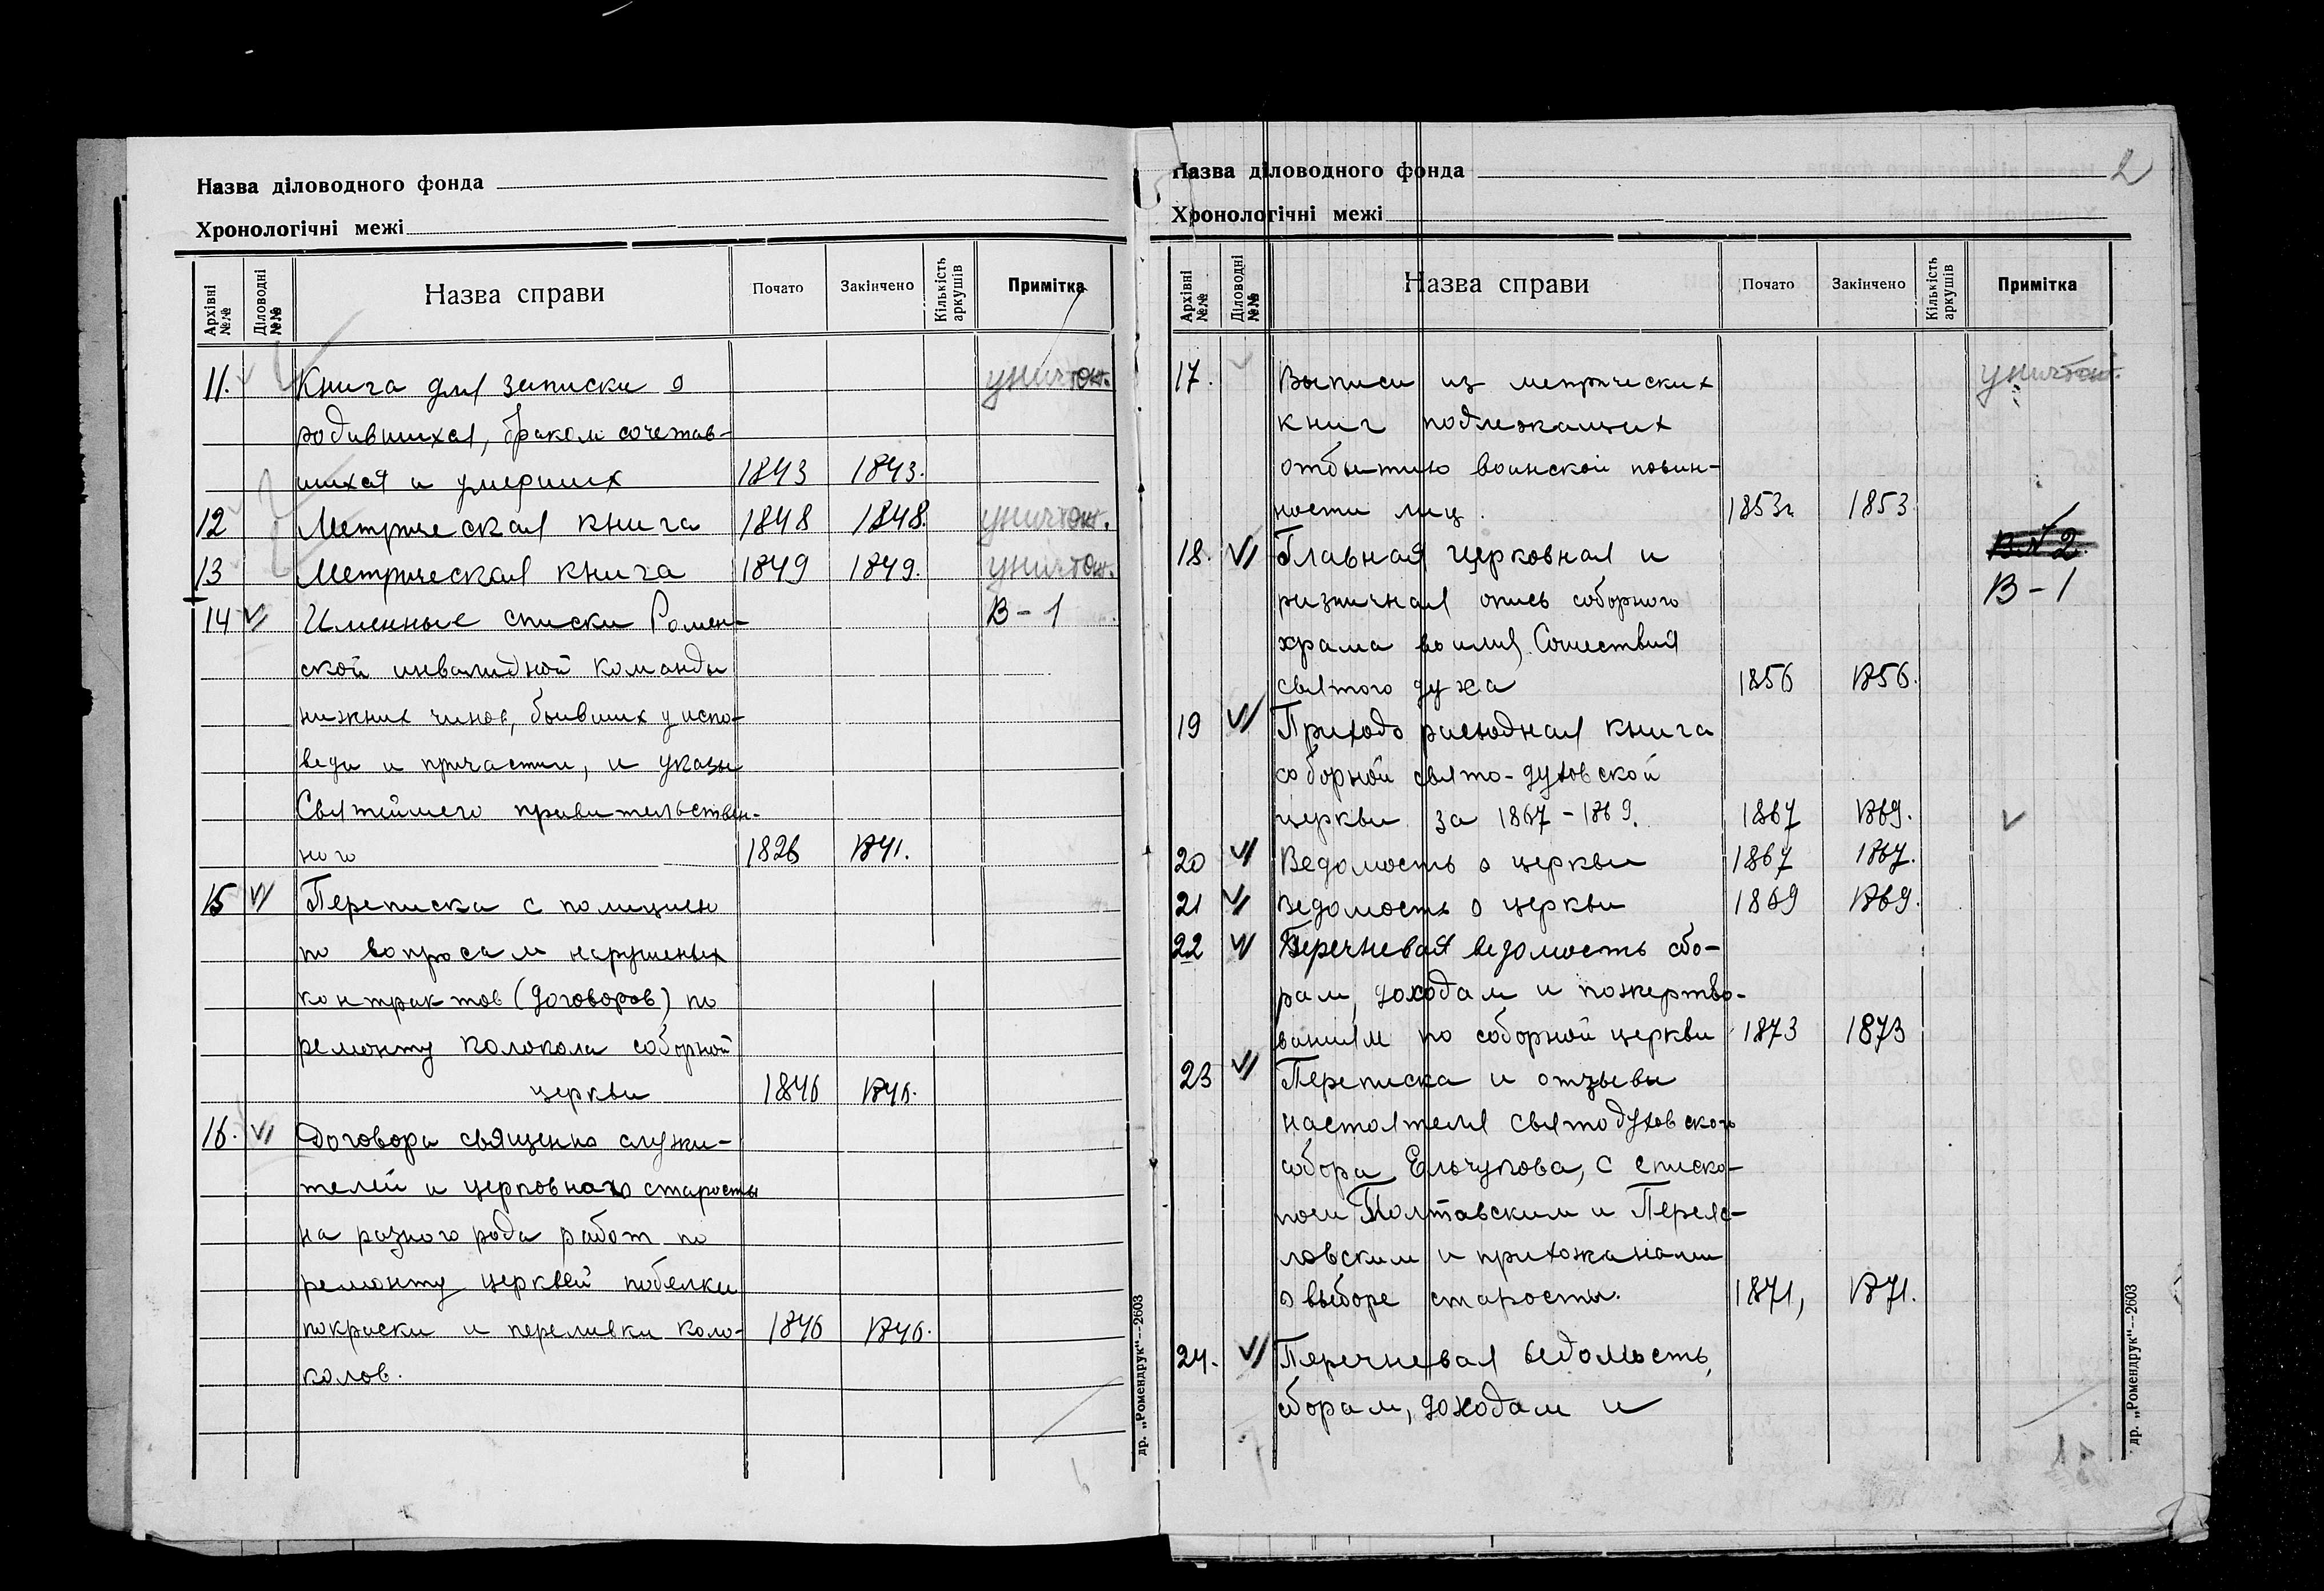 Назва діловодного фонда
Хронологічні межі
Архівні №№ Діловодні №№ Назва справи Почато Закінчено Кількість аркушів Примітка
11. Книга для записки о уничтож.
родившихся, браком сочетав-
шихся и умерших 1843 1843.
12 Метрическая книга 1848 1848. уничтож.
13 Метрическая книга 1849 1849. уничтож.
14 Именные списки Ромен- В-1
ской инвалидной команды
нижних чинов, бывших у испо-
веди и причастии, и указы
Святейшего правительствен-
ного 1826 1841.
15 Переписка с полициею
по вопросам нарушеных
контрактов (договоров) по
ремонту колокола соборной
церкви 1846 1846.
16. Договора священно служи-
телей и церковнаго старосты
на разного рода работ по
ремонту церквей побелки
покраски и переливки коло- 1846 1846.
колов.
др. „Ромендрук“--2603
2
Назва діловодного фонда
Хронологічні межі
Архівні №№ Діловодні №№ Назва справи Почато Закінчено Кількість аркушів Примітка
17. Выписи из метрических уничтож.
книг подлежащих
отбытию воинской повин-
ности лиц. 1853г 1853
18. Главная церковная и В№2
ризничная опись соборного В-1
храма во имя Сошествия
святого духа 1856 1856.
19 Приходо расходная книга
соборной свято-духовской
церкви за 1867-1869. 1867 1869.
20 Ведомость о церкви 1867 1867.
21 Ведомость о церкви 1869 1869.
22 Перечневая ведомость сбо-
рам, доходам и пожертво-
ваниям по соборной церкви 1873 1873
23 Переписка и отзывы
настоятеля святодуховского
собора Ельчукова, с еписко-
пом Полтавским и Переяс-
ловским и прихожанами
о выборе старосты. 1871, 1871.
24. Перечневая ведомость,
сборам, доходам и
др. „Ромендрук“--2603